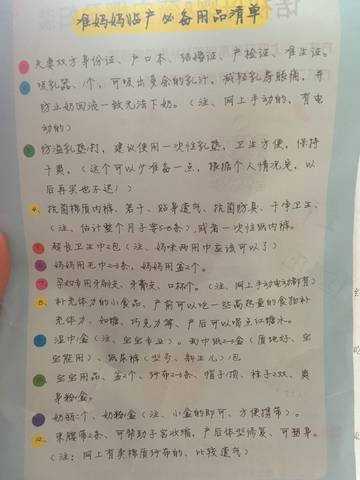 准妈妈临产必备用品清单
夫妻双方身份证、户口本、结婚证、产检证、准生证。
吸乳器、1个,可吸出多余的乳汁,减轻乳房胀痛,并
防止奶回流一致无法下奶。(注、网上手动的,有电
动的)
防溢乳垫1打,建议使用一次性乳垫,卫生方便,保持
干爽,(这个可以少准备一点,根据个人情况定,以
后再买也不迟!)
4、抗菌棉质内裤、若干、贴身透气、抗菌防臭、干净卫生,
(注、估计整个月子零5-8条)或者一次性纸内裤。
超长卫生巾2包(注、妈咪两用巾应该可以了)
妈妈用毛巾2-3条,妈妈用盆2个。
孕妇专用牙刷、牙膏、口杯个。(注、网上手动电动都有)
8、补充体力的小食品,产前可以吃一些高热量的食物补
充体力、如糖、巧克力等、产后可以喝点红糖水。
湿巾1盒(注、宝宝专业)。面巾纸2-3盒(质地好、宝
宝能用)、纸尿裤(型号、新生儿)1包
宝宝用品、盆2个、纱布2-3条、帽子1顶、袜子2双、爽
身粉1盒。
奶瓶1个、奶粉1盒(注、小盒的即可、方便携带)。
12、束腰带2条、可帮助子宫收缩,产后体型修复、可塑身。
(注:网上有卖棉质纱布的、比较透气)